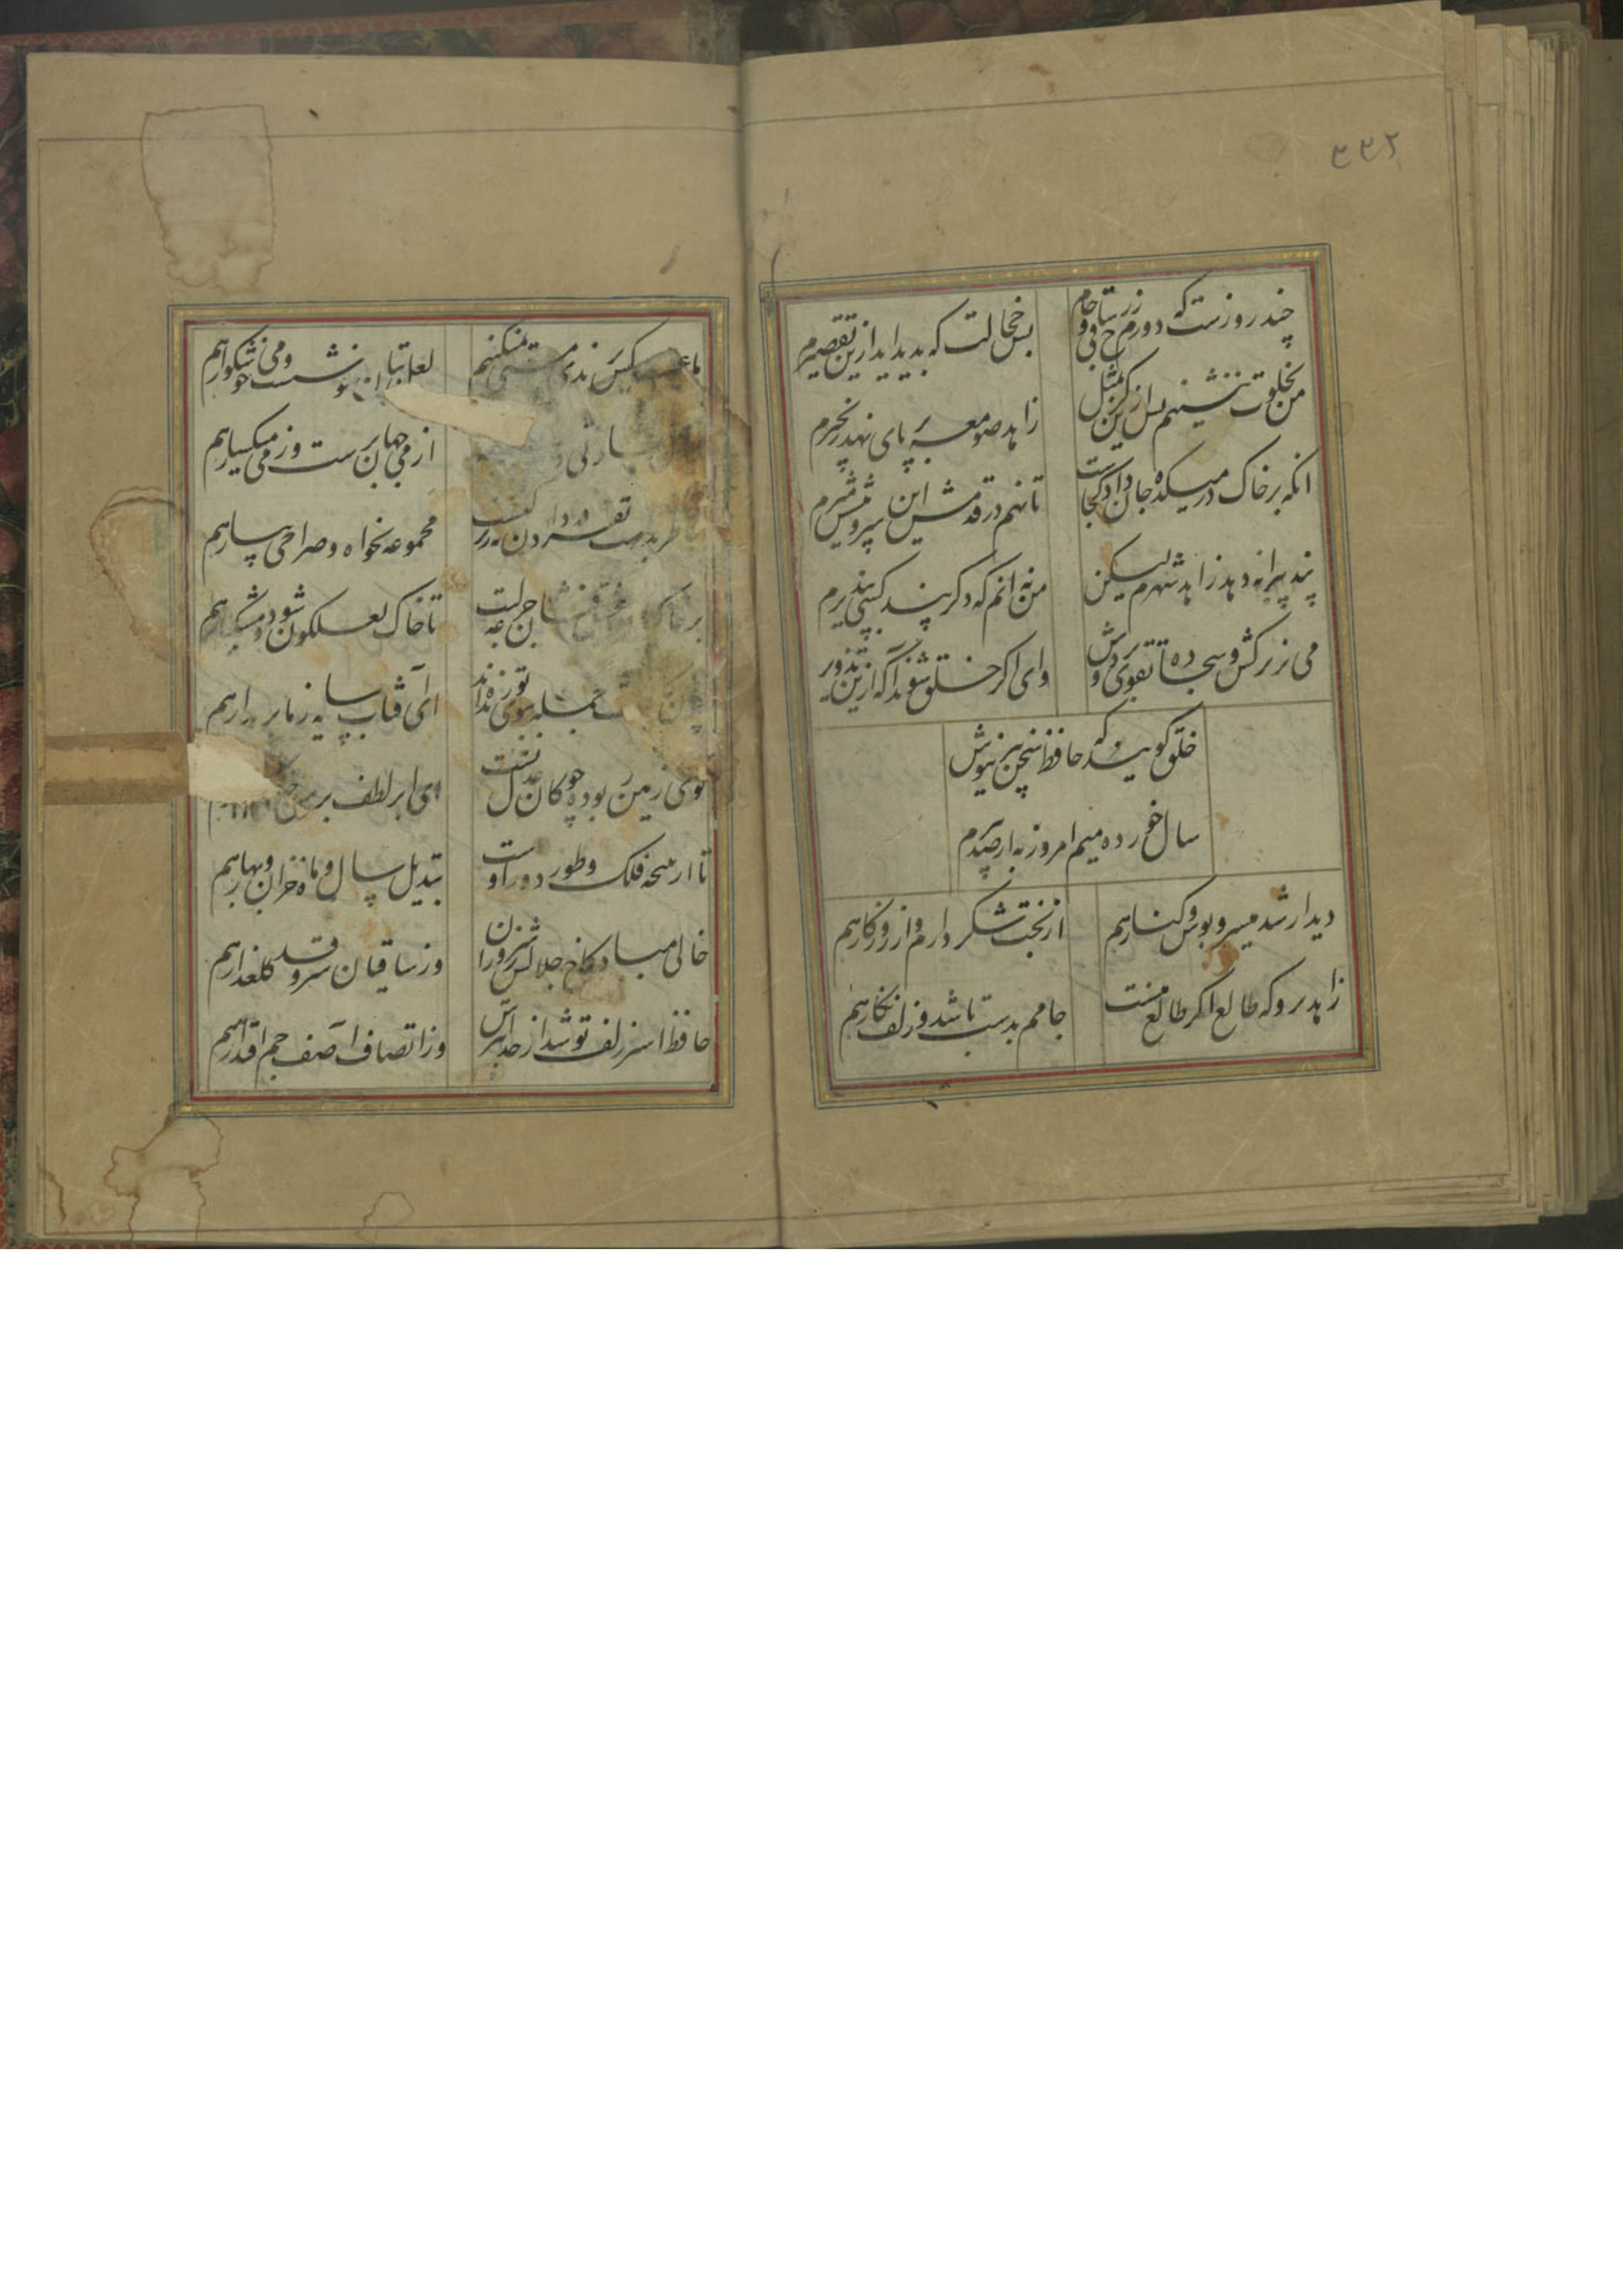 ۳۳۲
چند روزست که دورم ز رخ ساقی و جام
بس خجالت که بدید اید ازین تقصیرم
من بخلوت ننشینم پس ازین کر بمثل
زاهد صومعه بر پای نهد زنجیرم
انکه بر خاک در میکده جان داد کجاست
تا نهم در قدمش این سر و پیشش میرم
پند پیرانه دهد زاهد شهرم لیکن
من نه انم که دکر پند کسی بپذیرم
می نزیر کش و سجاده تقوی بر دوش
وای اکر خلق شوند آکه ازین تذویرم
خلق کویند که حافظ سخن پیر نیوش
سال خورده میم امروز به از صد پیرم
دیدار شد میسر و بوس و کنار هم
از بخت شکر دارم و از روزکار هم
زاهد برو که طالع اکر طالع منست
جامم بدست باشد و زلف نکار هم
ما عیب کس برندی و مستی نمیکنیم
لعل بتان خوشست و می خوشکوار هم
از می جهان پرست و ز می میکسار هم
خاطر بدست تفرقه دادن نه زیرکیست
مجموعه بخواه و صراحی بیار هم
بر خاکیان عشق فشان جرعه لبت
تا خاک لعلکون شود و مشکبار هم
چون جمله ببوی تو زنده اند
ای آفتاب سایه ز ما بر مدار هم
کوی زمین ربوده چوکان عدل تست
ای ابر لطف بر من
تا از نتیجه فلک و طور دور اوست
تبدیل سال و ماه و خزان و بهار هم
خالی مباد کاخ جلالش ز سروران
وز ساقیان سرو قد کلعذار هم
حافظ اسیر زلف تو شد از خدا بترس
وز انتصاف اصف جم اقتدار هم